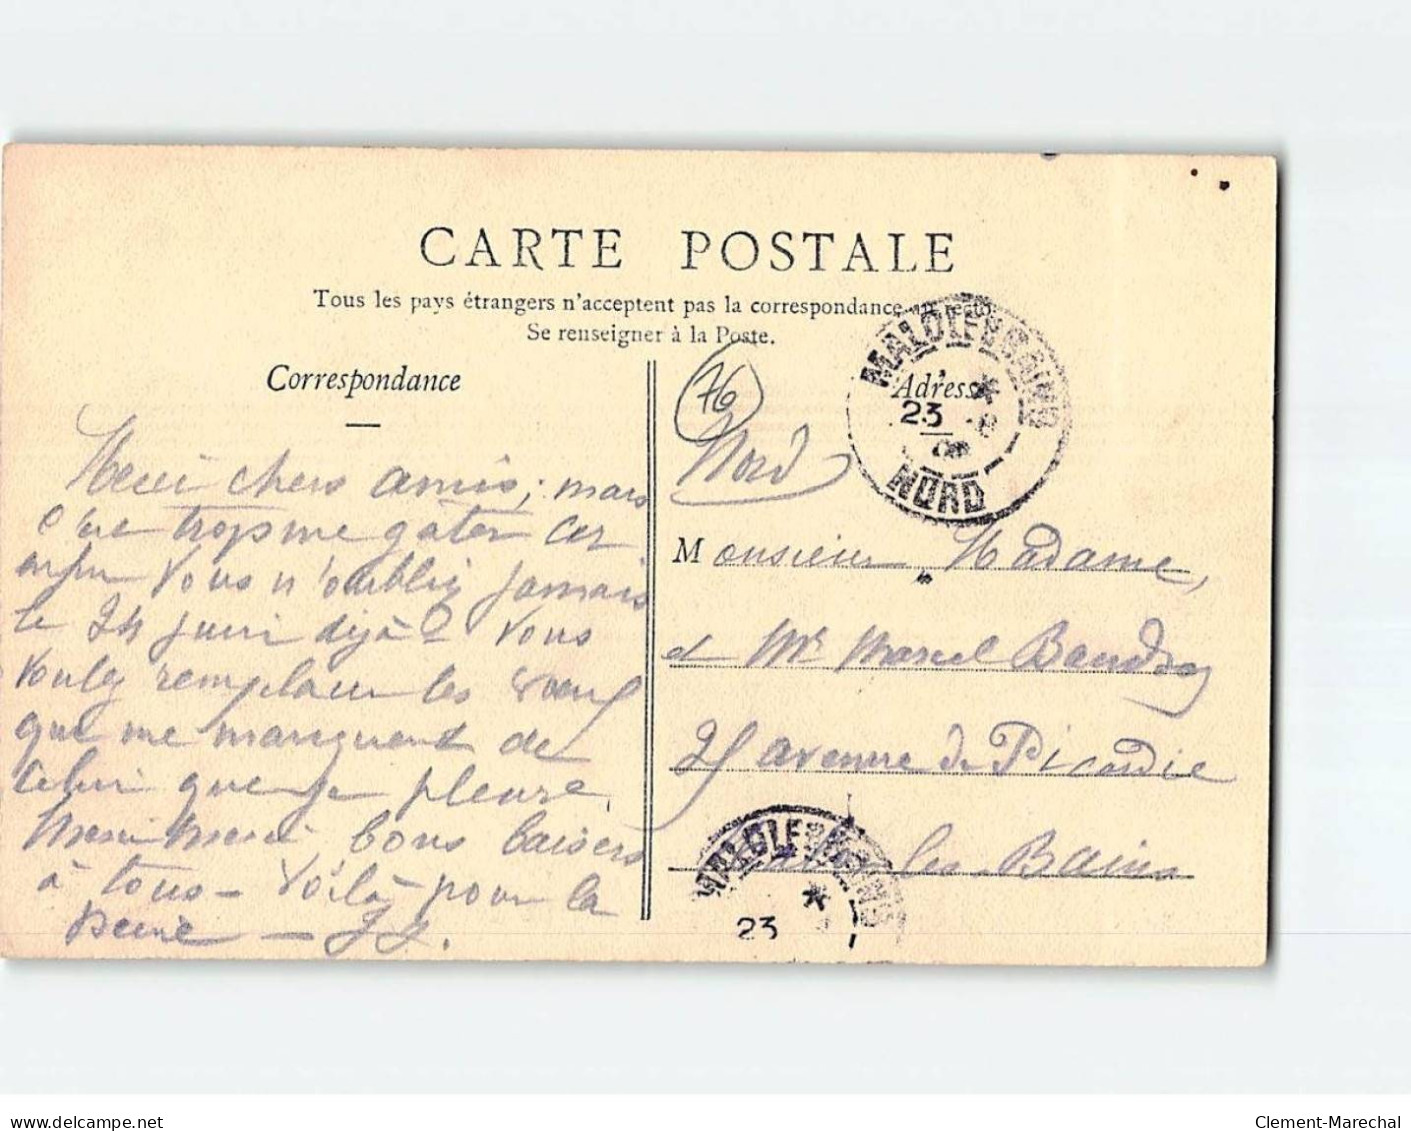 CARTE POSTALE
Tous les pays étrangers n'acceptent pas la correspondance au recto
Se renseigner à la Poste.
Correspondance
Adresse
76
Nord
MALO LES BAINS
23
NORD
Merci chers amis, mais
c'est trop me gâter car
enfin vous n'oubliez jamais
le 24 juin déjà? Vous
voulez remplacer les vœux
que me manquent de
celui que je pleure,
Merci Merci bons baisers
à tous — Voilà pour la
peine —
Monsieur Madame,
et Mr Marcel Baudroy
25 avenue de Picardie
Malo les Bains
MALO LES BAINS
23
delcampe.net
Clement-Marechal